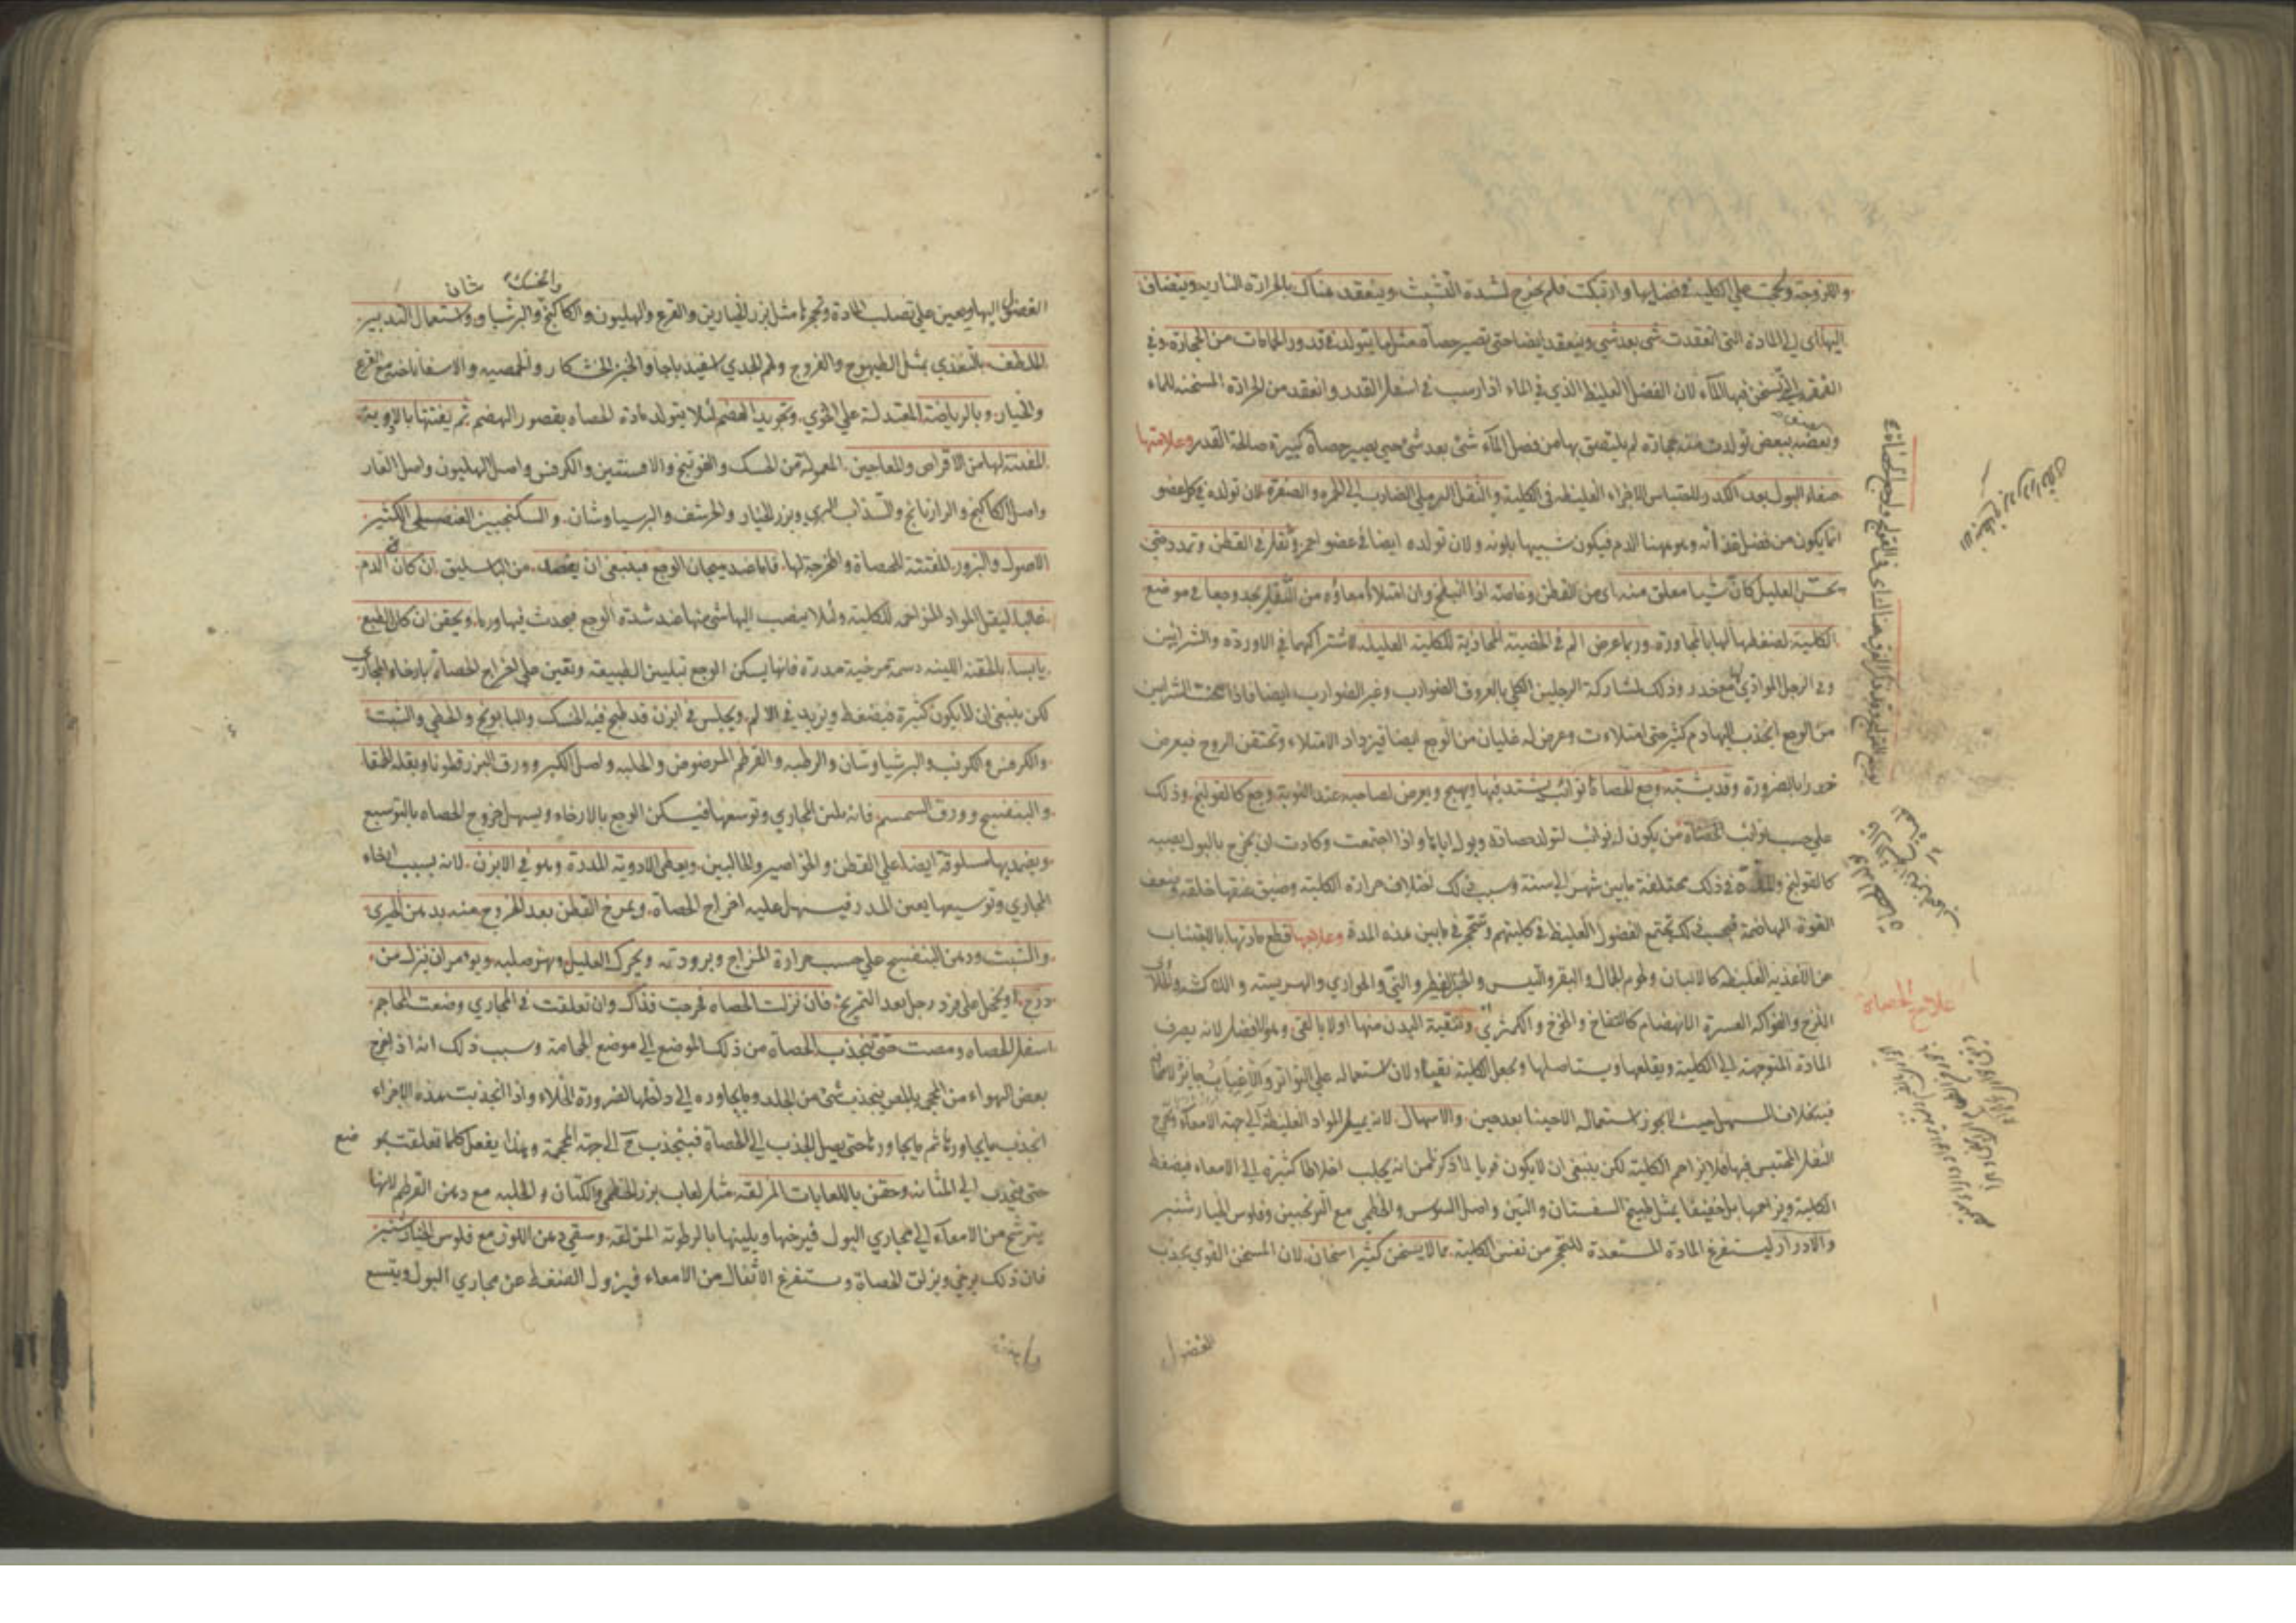 واللزوجة ولحجت على الكلية في فضلها وارتبكت فلم يخرج لشدة التشبث وينعقد هناك بالحرارة النارية وينضاف
اليها اى الى المادة التى انعقدت شى بعد شى وينعقد ايضا حتى تصير حصاة مثل ما يتولد في قدور الحمامات من الحجارة وفي
القماقم التى تسخن فيها الماء لان الفضل الغليظ الذي في الماء اذا رسب في اسفل القدر وانعقد من الحرارة المسخنة للماء
وبعضه ببعض تولدت منه حجارة ثم يلتصق بها من فضل الماء شئ بعد شئ حتى يصير حصاة كبيرة صالحة القدر وعلامتها
صفاء البول بعد الكدر لاحتباس الاجزاء الغليظة في الكلية والثقل الرملي الضارب الى الحمرة والصفرة لان تولده في كل عضو
انما يكون من فضل غذائه وهو ههنا الدم فيكون شبيها بلونه ولان تولده ايضا في عضو احمر وثقل في القطن وتمدد حتى
يحس العليل كان شيا معلق منه اى من القطن وخاصة اذا انبطح وان امتلاء امعاؤه من الثفل يجد وجعا في موضع
الكلية لضغطها لها بالمجاورة وربما عرض الم في الخصية المحاذية للكلية العليلة لاشتراكهما في الاوردة والشرايين
وفي الرجل الموازي مع خدر وذلك لمشاركة الرجلين الكلى بالعروق الضوارب وغير الضوارب ايضا فاذا سخنت الشرايين
من الوجع انجذب اليها دم كثير حتى امتلاءت وعرض له غليان من الوجع ايضا فيزداد الامتلاء وتحتقن الروح فيعرض
خدر بالضرورة وقد يشتبه وجع الحصاة نوائب يشتد فيها ويهيج ويعرض لصاحبه عند النوبة وجع كالقولنج وذلك
على حسب نوائب الحصاة من يكون له نوائب لتولد حصاة وبول اياها واذا اجتمعت وكادت ان يخرج بالبول يصيبه
كالقولنج والمدة في ذلك مختلفة ما بين شهر الى سنة وسبب ذلك اختلاف حرارة الكلية وضيق عنقها خلقة وضعف
القوة الهاضمة فبحسب ذلك تجتمع الفضول الغليظة في كليتهم وتتحجر في ما بين هذه المدة وعلاجها قطع مادتها بالاجتناب
عن الاغذية الغليظة كالالبان ولحوم الجمال والبقر والتيس والخبز الفطير والنئ والحوارى والهريسة والاكشه والماء
اللزج والفواكه العسرة الانهضام كالتفاح والخوخ والكمثرى وتنقية البدن منها اولا بالقئ وهو الافضل لانه يصرف
المادة المتوجهة الى الكلية ويقلعها ويستاصلها ويجعل الكلية نقية ولان استعماله على التواتر
بخلاف المسهل حيث لا يجوز استعماله الا حينا بعد حين والاسهال لانه يميل المواد الغليظة الى جهة الامعاء ويخرج
الثفل المحتبس فيها فلا يزاحم الكلية لكن ينبغي ان لا يكون قويا لما ذكر من انه يجلب اخلاطا كثيرة الى الامعاء فيضغط
الكلية ويزاحمها بل خفيفا بمثل طبيخ السفستان والتين واصل السوس والخطمي مع الترنجبين وفلوس الخيار شنبر
والادرار ليستفرغ المادة المستعدة للتحجر من نفس الكلية بما لا يسخن كثير اسخان لان المسخن القوي يجذب
علاج الحصاة
الفضول
والخسك شان
الفضول اليها ويعين على تصلب المادة وتحجرها مثل بزر الخيارين والقرع والهليون والكاكنج والبرشياو واستعمال التدبير
الملطف بالتغذي بمثل الطيهوج والفروج ولحم الجدي اسفيدباجا والخبز الخشكار والحمصية والاسفاناخية مع القرع
والخيار وبالرياضة المعتدلة على الخوي وتجويد الهضم لئلا يتولد مادة الحصاة بقصور الهضم ثم يفتتها بالادوية
المفتتة لها من الاقراص والمعاجين المعمولة من الخسك والفوتنج والافسنتين والكرفس واصل الهليون واصل الغار
واصل الكاكنج والرازيانج والسذاب البري وبزر الخيار والحرشف والبرسياوشان والسكنجبين العنصلي الكثير
الاصول والبزور المفتتة للحصاة والمخرجة لها فاما عند هيجان الوجع فينبغي ان يفصد من الباسليق ان كان الدم
غالبا ليقل المواد المزاحمة للكلية ولئلا ينصب اليها شئ منها عند شدة الوجع فيحدث فيها ورما ويحقن ان كان الطبع
يابسا بالحقنة اللينة دسمة مرخية مدرة فانها يسكن الوجع بتليين الطبيعة وتعين على اخراج الحصاة بارخاء المجارى
لكن ينبغي ان لا يكون كثيرة فيضغط ويزيد في الالم ويجلس في ابزن قد طبخ فيه الخسك والبابونج والخطمي والشبت
والكرفس والكرنب والبرشياوشان والرطبه والقرطم المرضوض والحلبه واصل الكبر وورق البزرقطونا وبقلة الحمقا
والبنفسج وورق السمسم فانه يلين المجاري وتوسعها فيسكن الوجع بالارخاء ويسهل خروج الحصاه بالتوسيع
ويضمد بها مسلوقة ايضا على القطن والخواصير والحالبين ويعطى الادوية المدرة وهو في الابزن لانه بسبب ارخاء
المجاري وتوسيعها يعين المدر فيسهل عليه اخراج الحصاة ويمرخ القطن بعد الخروج عنه بدهن الخيرى
والشبت ودهن البنفسج على حسب حرارة المزاج وبرودته ويحرك العليل ويهز صلبه ويؤمر ان ينزل من
درج او يحجل على فرد رجل بعد التمريخ فان نزلت الحصاه فخرجت فذاك وان تعلقت في المجاري وضعت المحاجم
اسفل الحصاه ومصت حتى تنجذب الحصاة من ذلك الموضع الى موضع الحجامة وسبب ذلك انه اذا اخرج
بعض الهواء من المحجمة بالمص ينجذب شئ من الجلد وما يجاوره الى داخلها لضرورة الخلاء واذا انجذبت هذه الاجزاء
انجذب ما يجاورها ثم ما يجاورها حتى يصل الجذب الى الحصاة فينجذب ح الى جهة المحجمة وهكذا يفعل كلما تعلقت بموضع
حتى ينجذب الى المثانه وحقن باللعابات المزلقه مثل لعاب بزر الخطمي والكتان والحلبه مع دهن القرطم لانها
يترشح من الامعاء الى مجاري البول فيرخيها ويلينها بالرطوبة المزلقة وسقي دهن اللوز مع فلوس الخيار شنبر
فان ذلك يرخي ويزلق الحصاة ويستفرغ الاثفال من الامعاء فيزول الضغط عن مجاري البول ويتسع